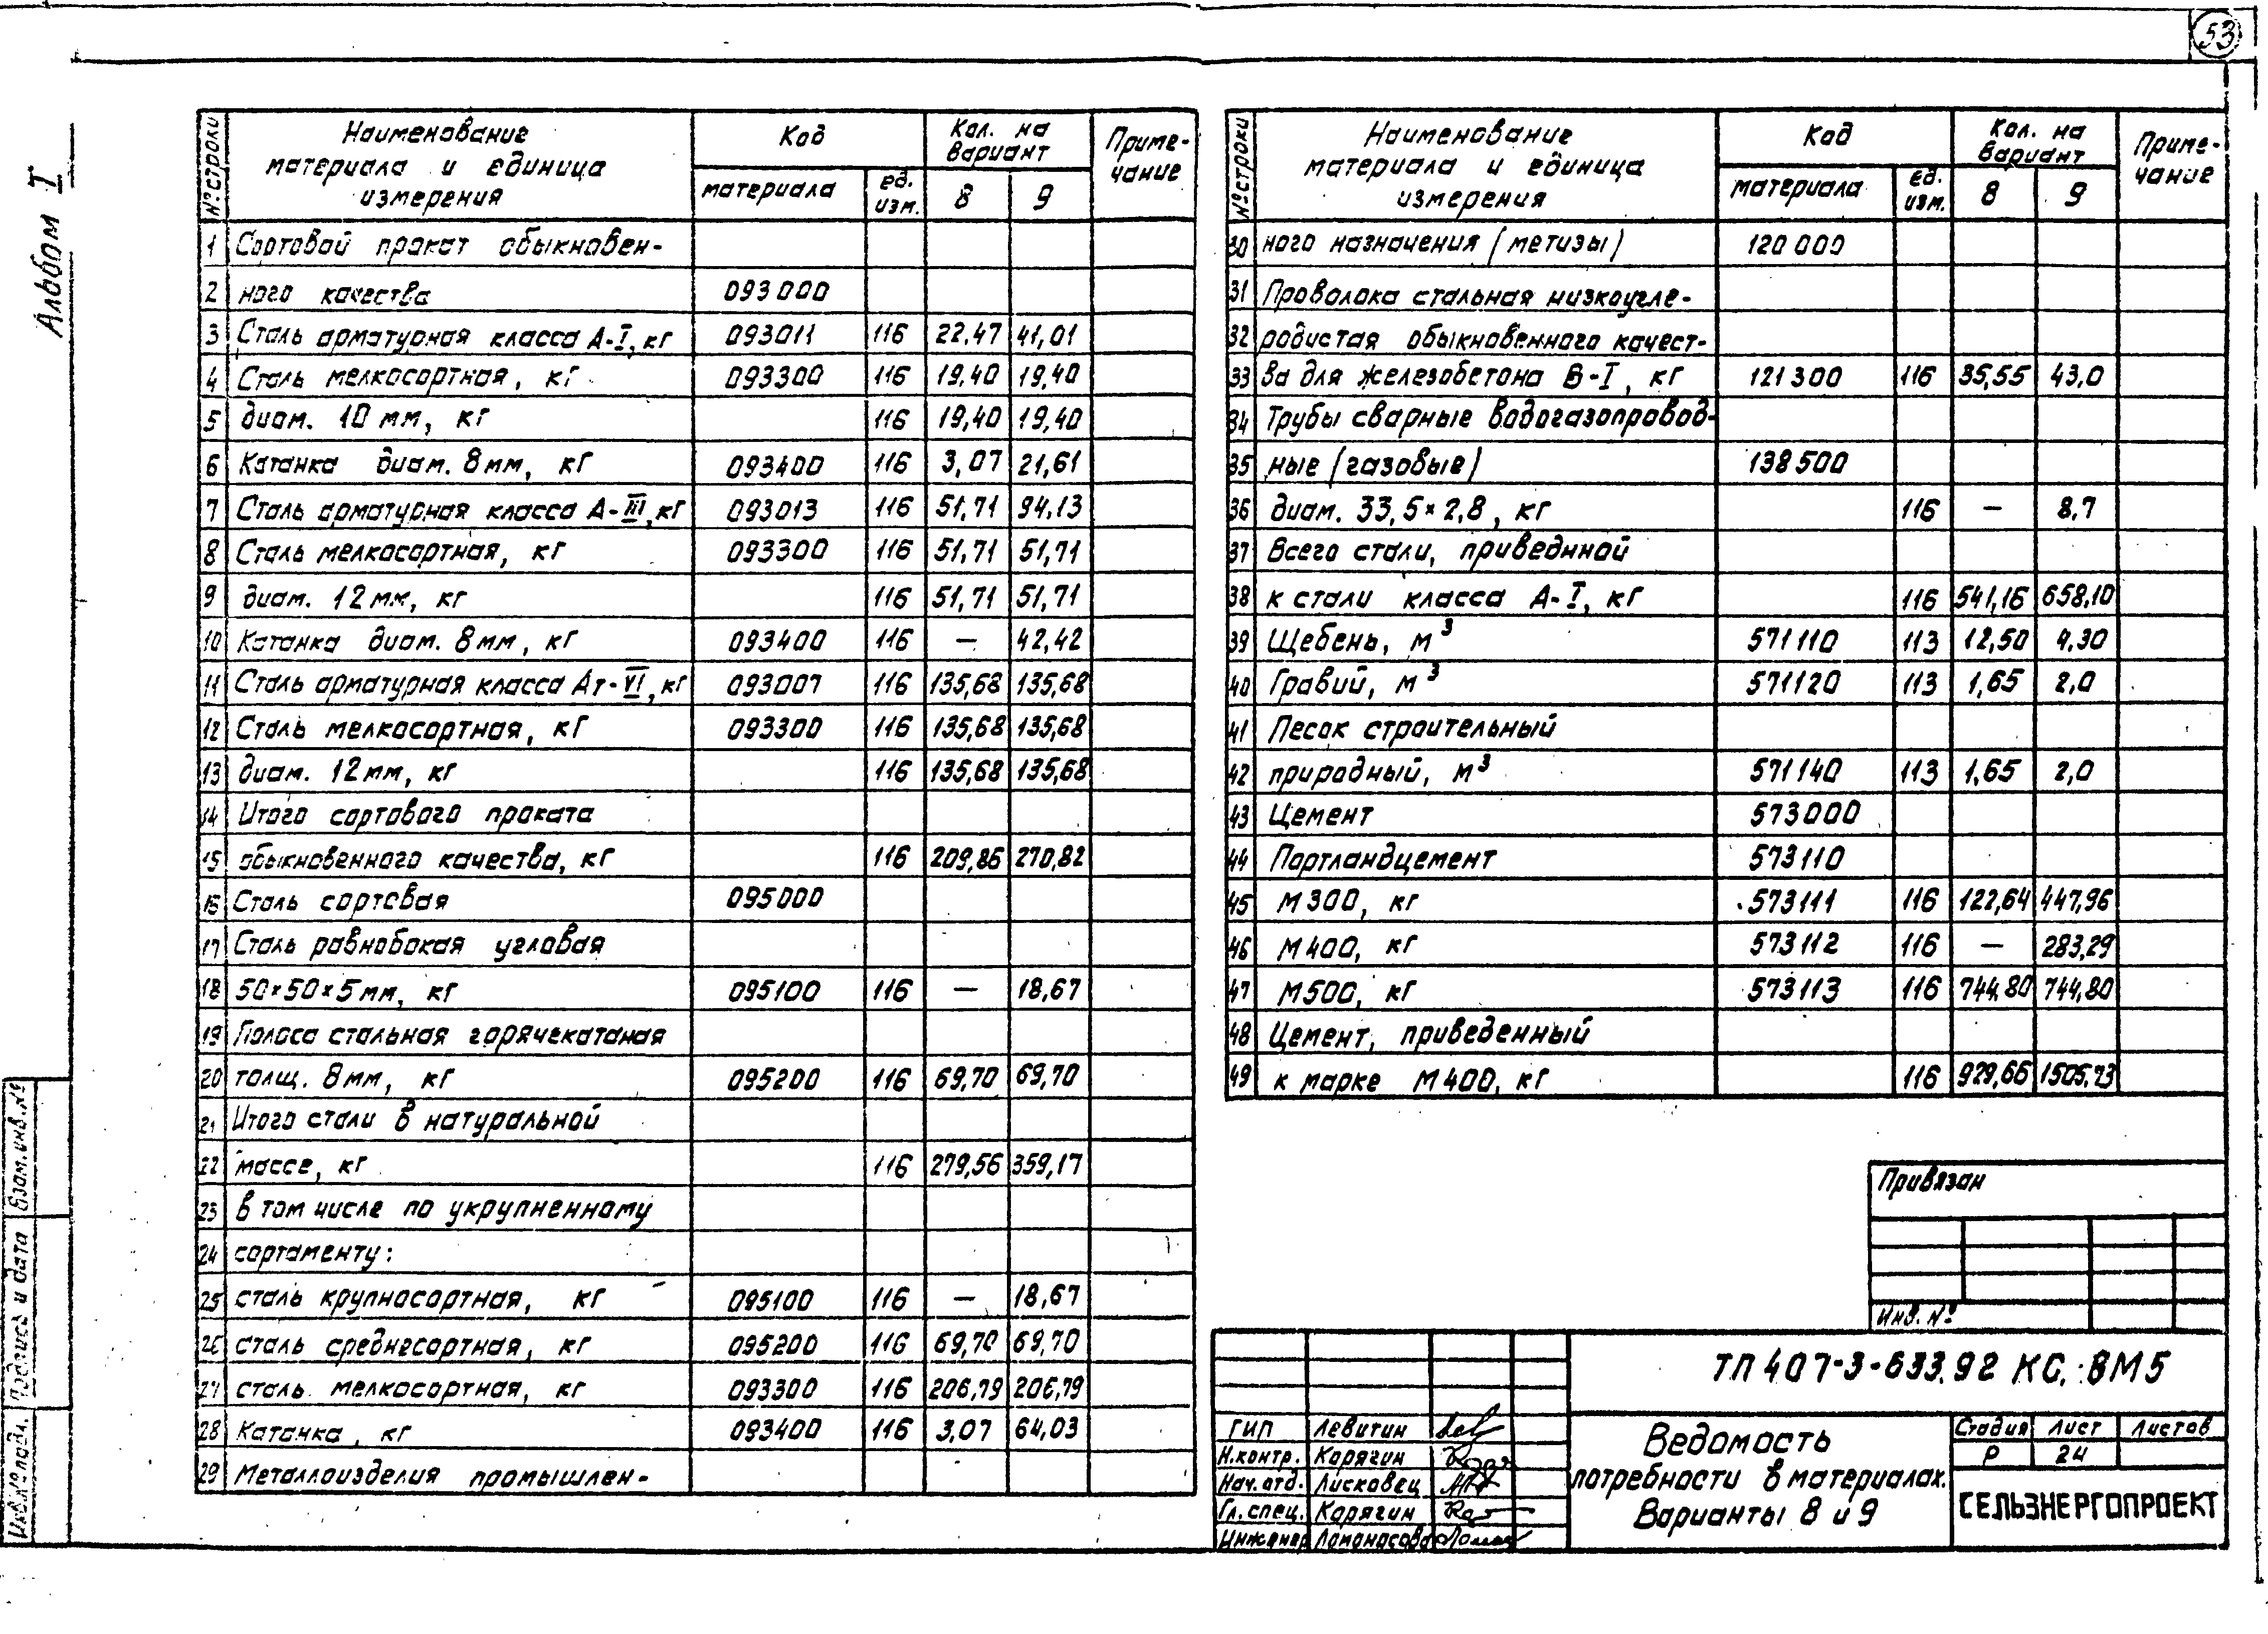 53
Альбом I
№ строки | Наименование материала и единица измерения | Код материала | Код ед. изм. | Кол. на вариант 8 | Кол. на вариант 9 | Примечание
1 Сортовой прокат обыкновен-
2 ного качества 093000
3 Сталь арматурная класса А-I, кг 093011 116 22,47 41,01
4 Сталь мелкосортная, кг 093300 116 19,40 19,40
5 диам. 10 мм, кг 116 19,40 19,40
6 Катанка диам. 8 мм, кг 093400 116 3,07 21,61
7 Сталь арматурная класса А-III, кг 093013 116 51,71 94,13
8 Сталь мелкосортная, кг 093300 116 51,71 51,71
9 диам. 12 мм, кг 116 51,71 51,71
10 Катанка диам. 8 мм, кг 093400 116 — 42,42
11 Сталь арматурная класса Ат-VI, кг 093007 116 135,68 135,68
12 Сталь мелкосортная, кг 093300 116 135,68 135,68
13 диам. 12 мм, кг 116 135,68 135,68
14 Итого сортового проката
15 обыкновенного качества, кг 116 209,86 270,82
16 Сталь сортовая 095000
17 Сталь равнобокая угловая
18 50×50×5 мм, кг 095100 116 — 18,67
19 Полоса стальная горячекатаная
20 толщ. 8 мм, кг 095200 116 69,70 69,70
21 Итого стали в натуральной
22 массе, кг 116 279,56 359,17
23 в том числе по укрупненному
24 сортаменту:
25 сталь крупносортная, кг 095100 116 — 18,67
26 сталь среднесортная, кг 095200 116 69,70 69,70
27 сталь мелкосортная, кг 093300 116 206,79 206,79
28 Катанка, кг 093400 116 3,07 64,03
29 Металлоизделия промышлен-
№ строки | Наименование материала и единица измерения | Код материала | Код ед. изм. | Кол. на вариант 8 | Кол. на вариант 9 | Примечание
30 ного назначения (метизы) 120000
31 Проволока стальная низкоугле-
32 родистая обыкновенного качест-
33 ва для железобетона В-I, кг 121300 116 35,55 43,0
34 Трубы сварные водогазопровод-
35 ные (газовые) 138500
36 диам. 33,5×2,8, кг 116 — 8,7
37 Всего стали, приведнной
38 к стали класса А-I, кг 116 541,16 658,10
39 Щебень, м³ 571110 113 12,50 4,30
40 Гравий, м³ 571120 113 1,65 2,0
41 Песок строительный
42 природный, м³ 571140 113 1,65 2,0
43 Цемент 573000
44 Портландцемент 573110
45 М300, кг 573111 116 122,64 447,96
46 М400, кг 573112 116 — 283,29
47 М500, кг 573113 116 744,80 744,80
48 Цемент, приведенный
49 к марке М400, кг 116 929,66 1505,73
Привязан
Инв. №
ТП 407-3-633.92 КС. ВМ5
ГИП Левитин
Н.контр. Карягин
Нач.отд. Лисковец
Гл.спец. Карягин
Инженер Ломоносова
Ведомость
потребности в материалах.
Варианты 8 и 9
Стадия Лист Листов
Р 24
СЕЛЬЭНЕРГОПРОЕКТ
Инв.№ подл. Подпись и дата Взам.инв.№